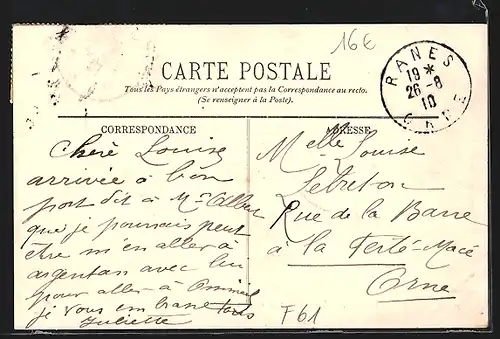 16€
CARTE POSTALE
Tous les Pays étrangers n'acceptent pas la Correspondance au recto.
(Se renseigner à la Poste).
RANES
19 *
26-8
10
ORNE
CORRESPONDANCE
Chère Louise
arrivée a bon
port dit à Mr
que je pourrais peut
être m'en aller a
argentan avec lui
pour aller à
je vous embrasse tous
Juliette
ADRESSE
Melle Louise
Lebreton
Rue de la Barre
à la Ferté-Macé
Orne
F61